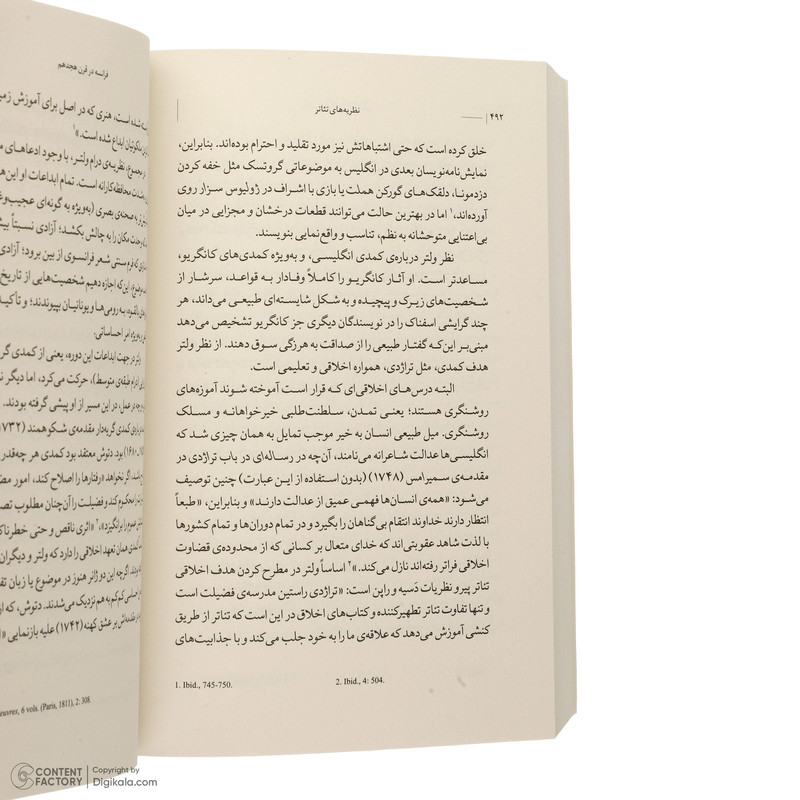 ۴۹۲
نظریه‌های تئاتر
خلق کرده است که حتی اشتباهاتش نیز مورد تقلید و احترام بوده‌اند. بنابراین،
نمایش‌نامه‌نویسان بعدی در انگلیس به موضوعاتی گروتسک مثل خفه کردن
دزدمونا، دلقک‌های گورکن هملت یا بازی با اشراف در ژولیوس سزار روی
آورده‌اند،۱ اما در بهترین حالت می‌توانند قطعات درخشان و مجزایی در میان
بی‌اعتنایی متوحشانه به نظم، تناسب و واقع‌نمایی بنویسند.
نظر ولتر درباره‌ی کمدی انگلیسی، و به‌ویژه کمدی‌های کانگریو،
مساعدتر است. او آثار کانگریو را کاملاً وفادار به قواعد، سرشار از
شخصیت‌های زیرک و پیچیده و به شکل شایسته‌ای طبیعی می‌داند، هر
چند گرایشی اسفناک را در نویسندگان دیگری جز کانگریو تشخیص می‌دهد
مبنی‌بر این‌که گفتار طبیعی را از صداقت به هرزگی سوق دهند. از نظر ولتر
هدف کمدی، مثل تراژدی، همواره اخلاقی و تعلیمی است.
البته درس‌های اخلاقی‌ای که قرار است آموخته شوند آموزه‌های
روشنگری هستند؛ یعنی تمدن، سلطنت‌طلبی خیرخواهانه و مسلک
روشنگری. میل طبیعی انسان به خیر موجب تمایل به همان چیزی شد که
انگلیسی‌ها عدالت شاعرانه می‌نامند، آن‌چه در رساله‌ای در باب تراژدی در
مقدمه‌ی سمیرامس (۱۷۴۸) (بدون استفاده از این عبارت) چنین توصیف
می‌شود: «همه‌ی انسان‌ها فهمی عمیق از عدالت دارند» و بنابراین، «طبعاً
انتظار دارند خداوند انتقام بی‌گناهان را بگیرد و در تمام دوران‌ها و تمام کشورها
با لذت شاهد عقوبتی‌اند که خدای متعال بر کسانی که از محدوده‌ی قضاوت
اخلاقی فراتر رفته‌اند نازل می‌کند.»۲ اساساً ولتر در مطرح کردن هدف اخلاقی
تئاتر پیرو نظریات دَسیه و راپن است: «تراژدی راستین مدرسه‌ی فضیلت است
و تنها تفاوت تئاتر تطهیرکننده و کتاب‌های اخلاق در این است که تئاتر از طریق
کنشی آموزش می‌دهد که علاقه‌ی ما را به خود جلب می‌کند و با جذابیت‌های
1. Ibid., 745-750.
2. Ibid., 4: 504.
فرانسه در قرن هجدهم
شده است، هنری که در اصل برای آموزش
ابداع شده است.»۱
نظریه‌ی درام ولتر، با وجود ادعاهای
محافظه‌کارانه است. تمام ابداعات او این
به صحنه‌ی بصری (به‌ویژه به گونه‌ای
وحدت مکان را به چالش بکشد؛ آزادی نسبتاً
فرم سنتی شعر فرانسوی از بین برود؛ آزادی
این‌که اجازه دهیم شخصیت‌هایی از تاریخ
به رومی‌ها و یونانیان بپیوندند؛ و تأکید
امر احساساتی.
در جهت ابداعات این دوره، یعنی از کمدی
طبقه‌ی متوسط)، حرکت می‌کرد، اما دیگر
در عمل، در این مسیر از او پیشی گرفته بودند.
کمدی گریه‌دار مقدمه‌ی شکوهمند (۱۷۳۲)
بود. دتوش معتقد بود کمدی هر چه‌قدر
اگر نخواهد «رفتارها را اصلاح کند، امور
محکوم کند و فضیلت را آن‌چنان مطلوب
اثری ناقص و حتی
همان تعهد اخلاقی را دارد که ولتر و دیگران
اگرچه این دو ژانر هنوز در موضوع یا زبان
کم‌کم به هم نزدیک می‌شدند. دتوش، که
بر عشق کهنه (۱۷۴۲) علیه بازنمایی
6 vols. (Paris, 1811), 2: 308.
CONTENT FACTORY
Copyright by
Digikala.com